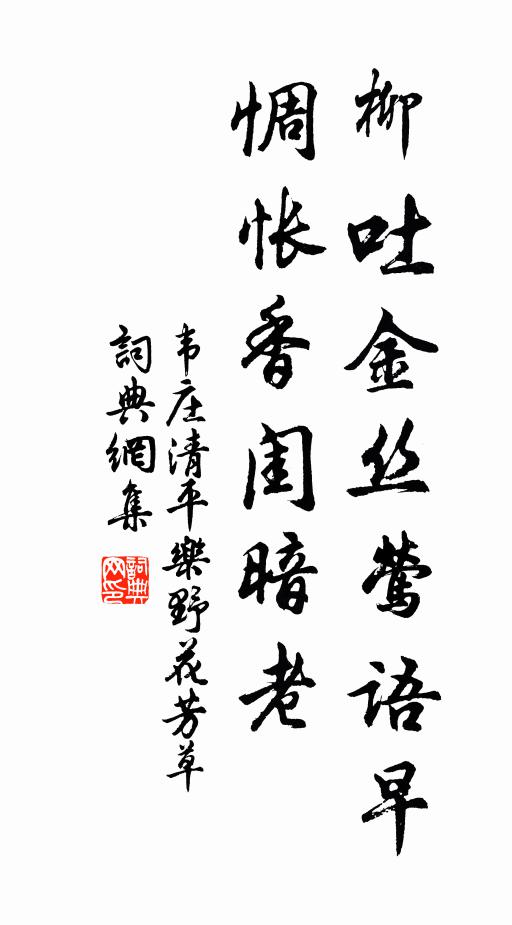 柳吐金丝莺语早
惆怅香闺暗老
韦庄清平樂野花芳草
詞典網集
詞典网印